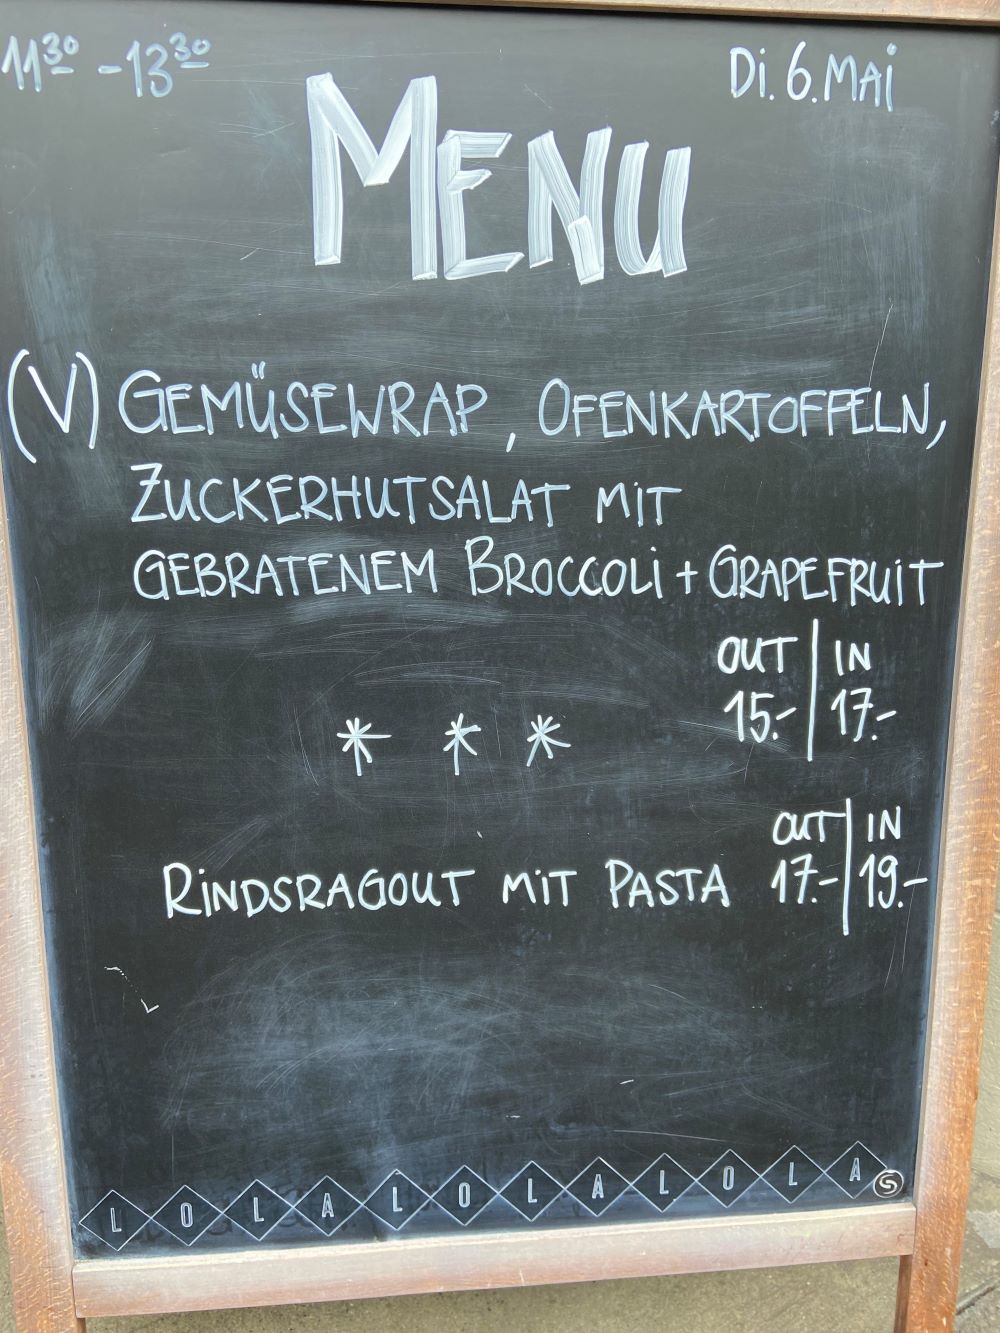 11³⁰ - 13³⁰
Di. 6. MAi
MENU
(V) GEMÜSEWRAP, OFENKARTOFFELN,
ZUCKERHUTSALAT MiT
GEBRATENEM BROCCOLi + GRAPEFRUiT
OUT | IN
15.- | 17.-
* * *
OUT | IN
RiNDSRAGOUT MiT PASTA 17.- | 19.-
L O L A L O L A L O L A S